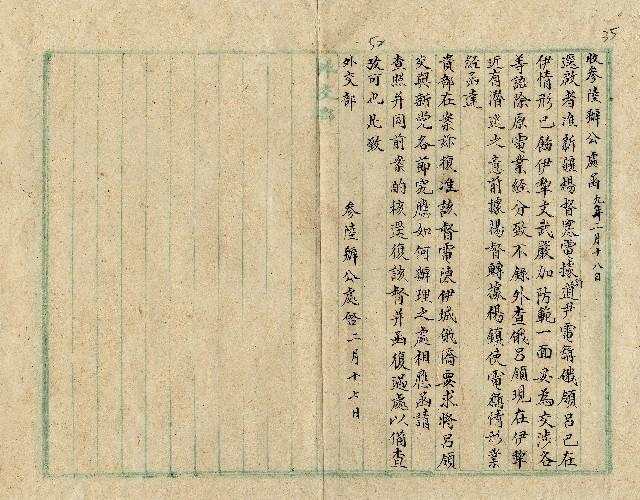 35
收參陸辦公處函 九年二月十八日
逕啟者准新疆楊督寒電據道尹電稱俄領呂已在
伊情形已飭伊犂文武嚴加防範一面妥為交涉各
等語除原電業經分致不錄外查俄呂領現在伊犂
近有潛逃之意前據楊督轉據楊鎮使電稱情形業
經函達
貴部在案茲復准該督電陳伊城俄僑要求將呂領
交與新党各節究應如何辦理之處相應函請
查照并同前案酌核逕復該督并函復過處以備查
攷可也此致
外交部
參陸辦公處啓二月十七日
52
外交部